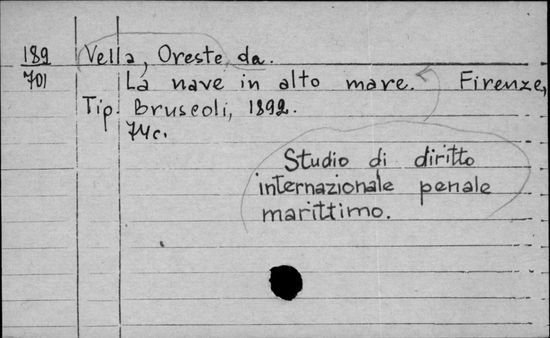 189 Vella, Oreste da.
701 La nave in alto mare. Firenze,
Tip. Bruscoli, 1892.
74c.
Studio di diritto
internazionale penale
marittimo.